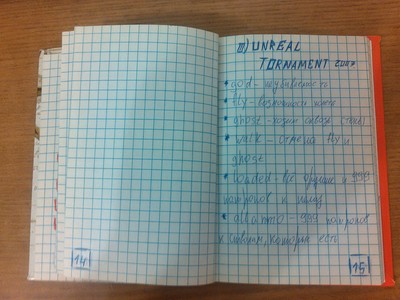 III) UNREAL
TORNAMENT
• god - неубиваемость
• fly - возможность летать
• ghost - ходить сквозь стены
• walk - отмена fly и
ghost
• loaded - все оружие и 999
патронов к нему
• allammo - 999 патронов
к стволам, которые есть
14
15